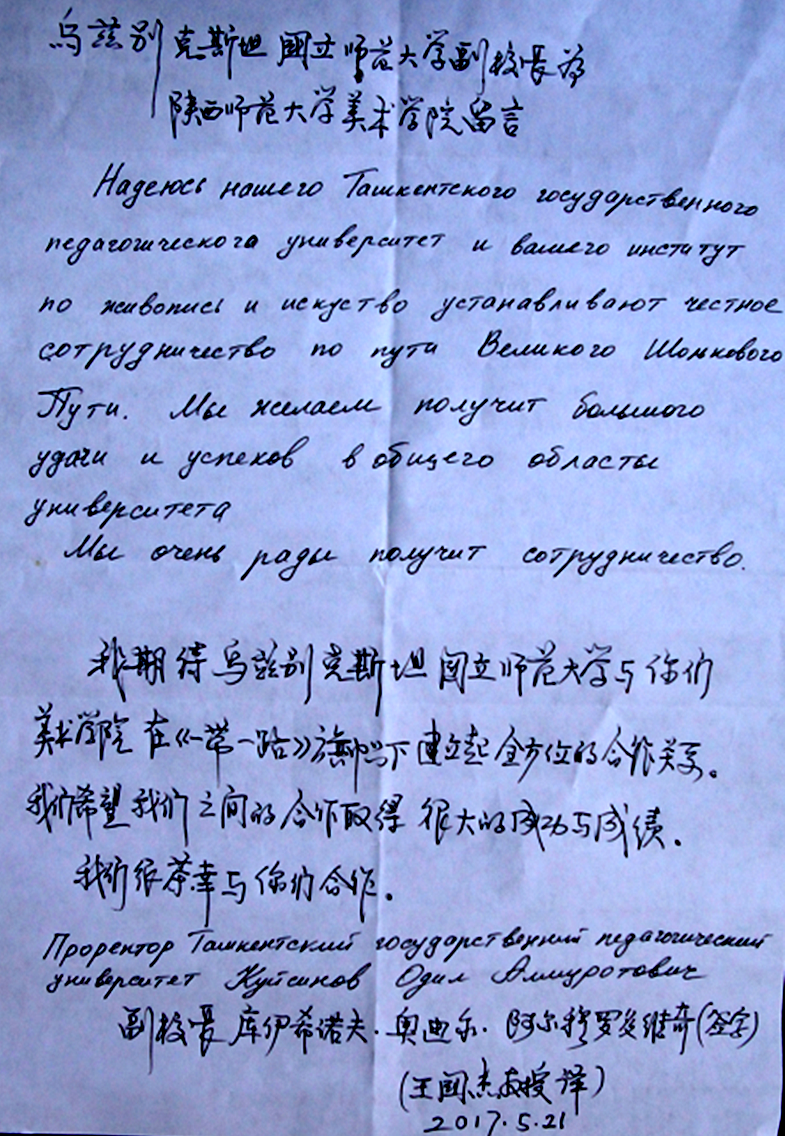 乌兹别克斯坦国立师范大学副校长为
陕西师范大学美术学院留言
Надеюсь нашего Ташкентского государственного
педагогического университет и вашего институт
по живопись и искуство устанавливают честное
сотрудничество по пути Великого Шолкового
Пути. Мы желаем получит большого
удачи и успехов в общего области
университета
Мы очень рады получит сотрудничество.
我期待乌兹别克斯坦国立师范大学与你们
美术学院在《一带一路》旗帜下建立起全方位的合作关系。
我们希望我们之间的合作取得很大的成功与成绩。
我们很荣幸与你们合作。
Проректор Ташкентский государственний педагогический
университет Куйсинов Одил Алмуротович
副校长库伊希诺夫·奥迪尔·阿尔穆罗多维奇(签字)
(王国杰教授译)
2017.5.21